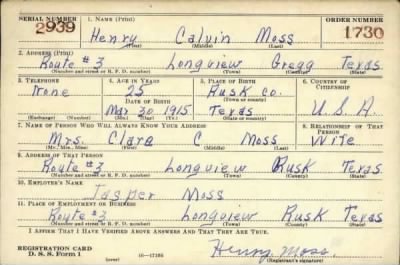 SERIAL NUMBER 1. NAME (Print) ORDER NUMBER
2939 Henry Calvin Moss 1730
(First) (Middle) (Last)
2. ADDRESS (Print)
Route #3 Longview Gregg Texas
(Number and street or R. F. D. number) (Town) (County) (State)
3. TELEPHONE 4. AGE IN YEARS 5. PLACE OF BIRTH 6. COUNTRY OF CITIZENSHIP
None 25 Rusk Co.
DATE OF BIRTH (Town or county)
Mar 30 1915 Texas U.S.A.
(Exchange) (Number) (Mo.) (Day) (Yr.) (State or country)
7. NAME OF PERSON WHO WILL ALWAYS KNOW YOUR ADDRESS 8. RELATIONSHIP OF THAT PERSON
Mrs. Clara C Moss Wife
(Mr., Mrs., Miss) (First) (Middle) (Last)
9. ADDRESS OF THAT PERSON
Route #3 Longview Rusk Texas
(Number and street or R. F. D. number) (Town) (County) (State)
10. EMPLOYER'S NAME
Jasper Moss
11. PLACE OF EMPLOYMENT OR BUSINESS
Route #3 Longview Rusk Texas
(Number and street or R. F. D. number) (Town) (County) (State)
I AFFIRM THAT I HAVE VERIFIED ABOVE ANSWERS AND THAT THEY ARE TRUE.
REGISTRATION CARD Henry Moss
D. S. S. Form 1 (over) 16—17105 (Registrant's signature)